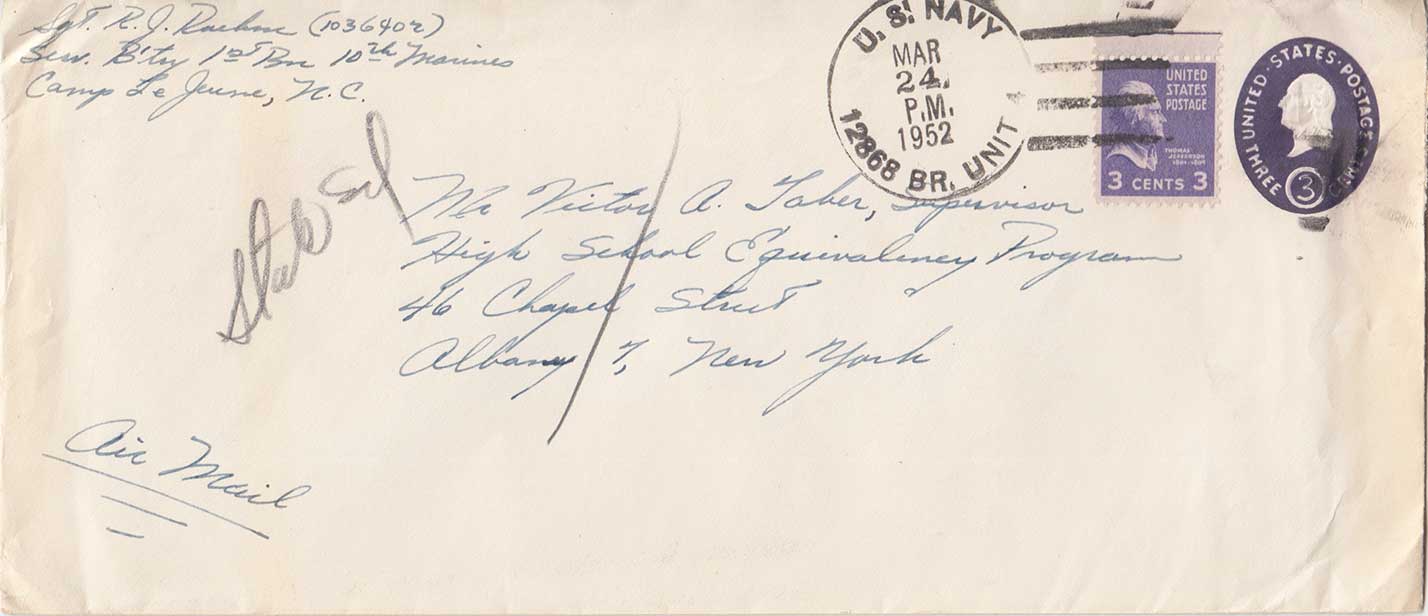 Sgt. R. J. (1036402)
Serv. Btry 1st Bn 10th Marines
Camp Le Jeune, N.C.
U. S. NAVY
MAR
24
P.M.
1952
12868 BR. UNIT
UNITED
STATES
POSTAGE
THOMAS
JEFFERSON
1801-1809
3 CENTS 3
UNITED · STATES · POSTAGE
THREE 3 CENTS
State Ed
Mr Victor A. Taber, Supervisor
High School Equivalency Program
46 Chapel Street
Albany 7, New York
Air Mail